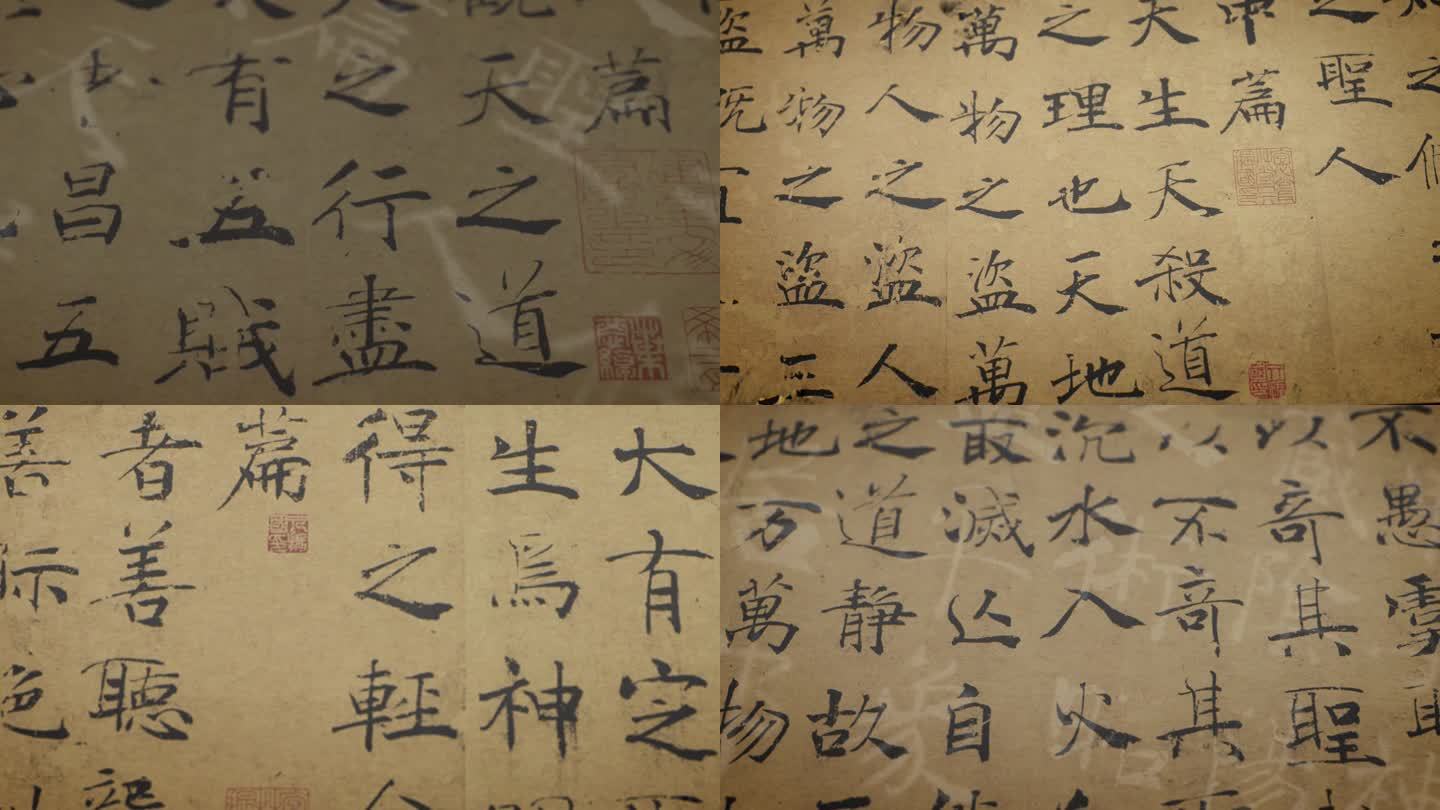 篇
天之道
之行盡
有五賊
昌五
之
之聖人
中篇
天生天殺道
之理也天地
萬物之盜萬
物人之盜人
萬物之盜三
盜既
大有定
生爲神
得之輕
篇
者善聽
善視絕
不愚虞
以奇其聖
以不奇其
沉水入火
取滅亡自
之道靜故
地万萬物